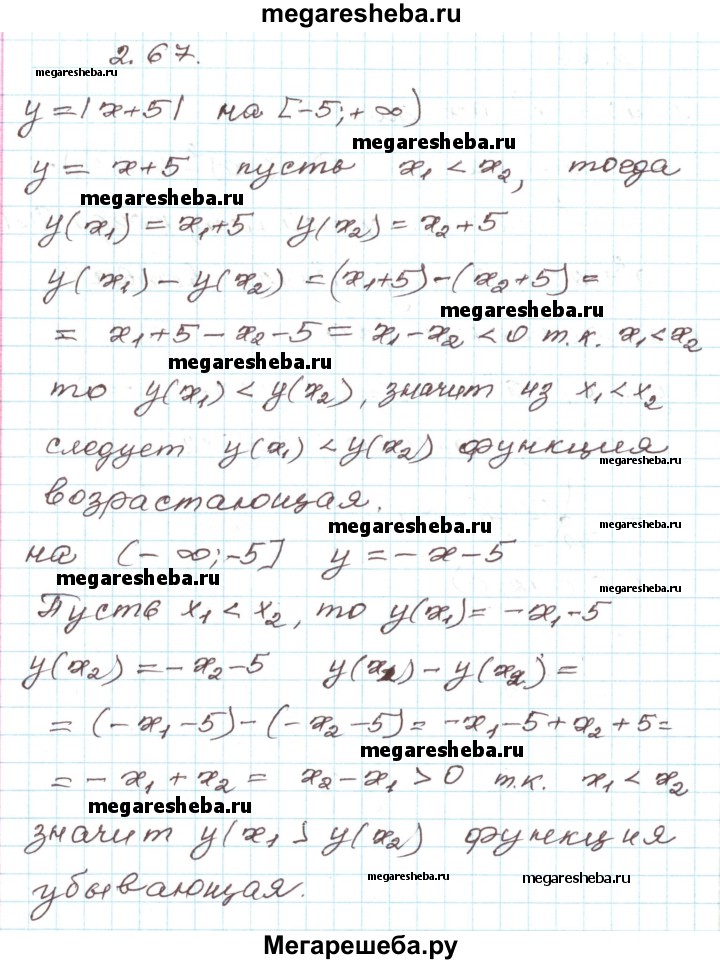 megaresheba.ru
2.67.
megaresheba.ru
y=|x+5| на [-5;+∞)
megaresheba.ru
y = x+5 пусть x₁ < x₂, тогда
megaresheba.ru
y(x₁) = x₁+5 y(x₂) = x₂+5
y(x₁) - y(x₂) = (x₁+5)-(x₂+5) =
megaresheba.ru
= x₁+5-x₂-5 = x₁-x₂ <0 т.к. x₁<x₂
megaresheba.ru
то y(x₁) < y(x₂), значит из x₁<x₂
следует y(x₁) < y(x₂) функция
megaresheba.ru
возрастающая.
megaresheba.ru
megaresheba.ru
на (-∞;-5] y = -x-5
megaresheba.ru
megaresheba.ru
Пусть x₁ < x₂, то y(x₁) = -x₁-5
y(x₂) = -x₂-5 y(x₁) - y(x₂) =
= (-x₁-5)-(-x₂-5) = -x₁-5+x₂+5=
megaresheba.ru
= -x₁+x₂ = x₂-x₁ >0 т.к. x₁ < x₂
megaresheba.ru
значит y(x₁ > y(x₂) функция
убывающая.
megaresheba.ru
megaresheba.ru
Мегарешеба.ру